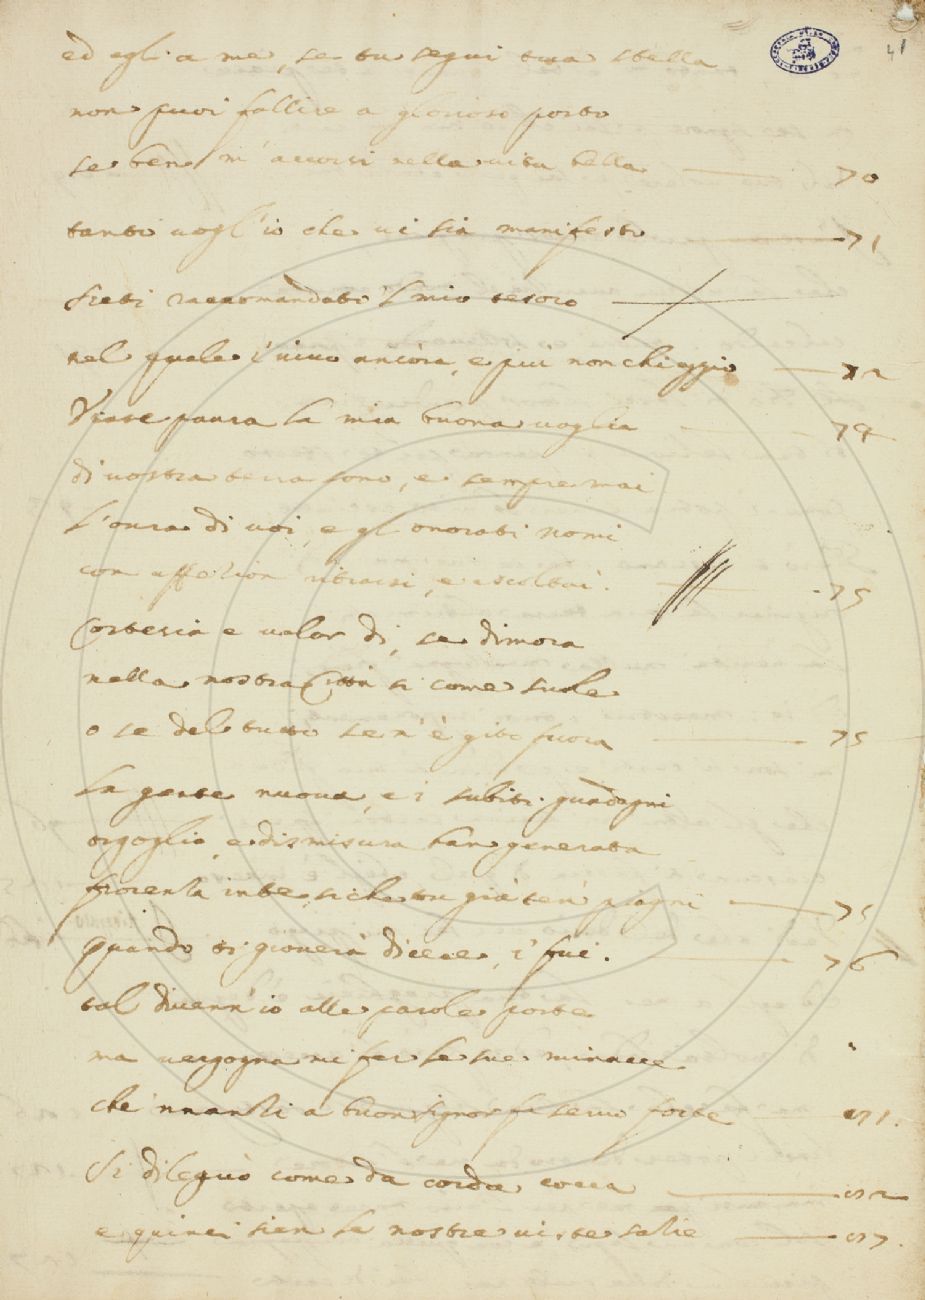 41
ed egli a me, se tu segui tua stella
non puoi fallire a glorioso porto
se ben m'accorsi nella vita bella 70
tanto vogl'io che vi sia manifesto 71
sieti raccomandato 'l mio tesoro
nel quale i' vivo ancora, e più non chieggio 72
paura la mia buona voglia 74
di vostra terra sono, e sempre mai
l'ovra di voi, e gl'onorati nomi
con affetion ritrassi, e ascoltai. 75
Cortesia e valor di, se dimora
nella nostra Città si come suole
o se del tutto se n'è gito fuora 75
La gente nuova, e i subiti guadagni
orgoglio, e dismisura han generata
fiorenza in te, si che tu già ten piagni 75
Quando ti gioverà dicere, i' fui. 76
tal divenn'io alle parole porte
ma vergogna mi fer le sue minacce
che 'nnanzi a buon signor fa servo forte
Si dileguò come da corda cocca
e quinci sien le nostre viste salie